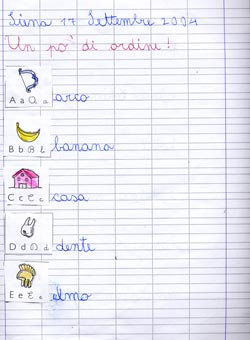 Siena 17 Settembre 2004
Un po' di ordine!
A a a a arco
B b B b banana
C c C c casa
D d D d dente
E e E e elmo